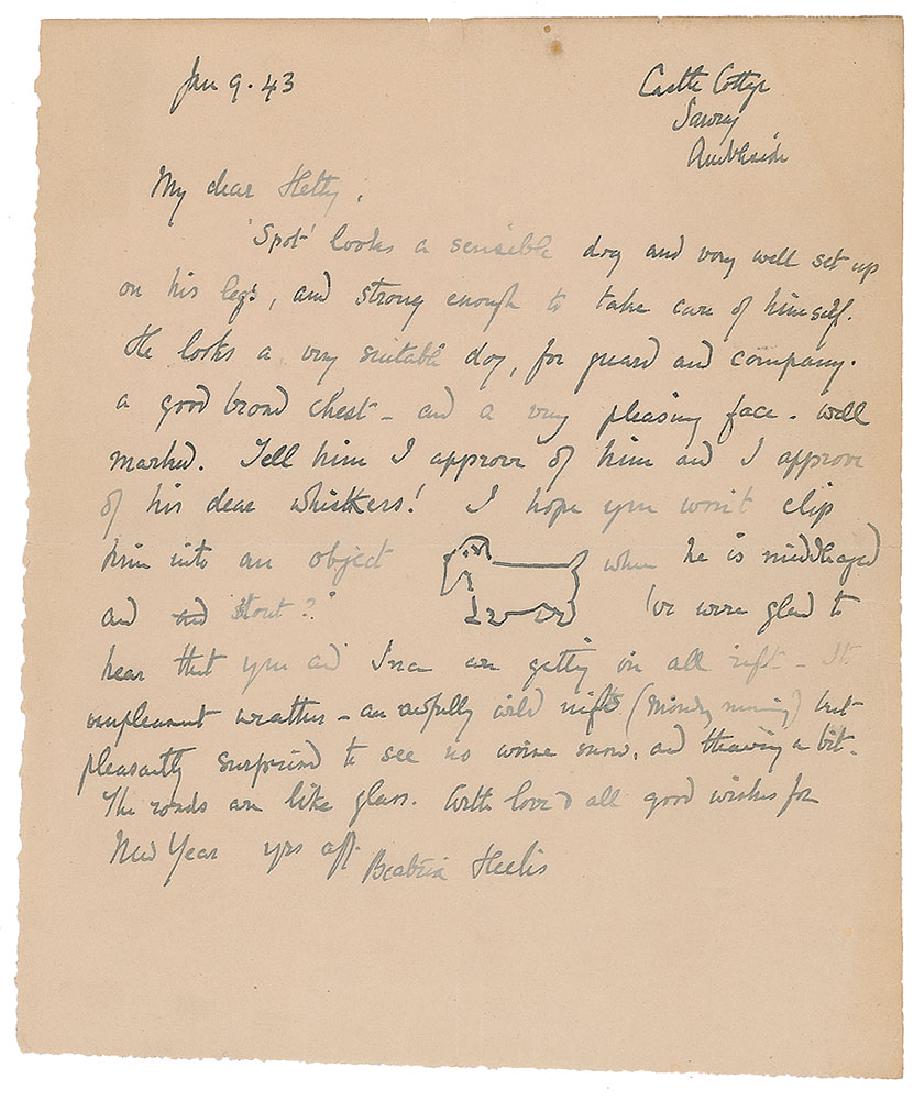 Jan 9. 43
Castle Cottage
Sawrey
Ambleside
My dear Hetty,
'Spot' looks a sensible dog and very well set up
on his legs, and strong enough to take care of himself.
He looks a very suitable dog, for guard and company.
a good broad chest - and a very pleasing face. well
marked. Tell him I approve of him and I approve
of his dear whiskers! I hope you won't clip
him into an object when he is middleaged
and stout?
We were glad to
hear that you and are getting on all right - It
unpleasant weather - an awfully wild night (Monday morning) but
pleasantly surprised to see no worse snow, and thawing a bit.
The roads are like glass. With love & all good wishes for
New Year yrs aff. Beatrix Heelis